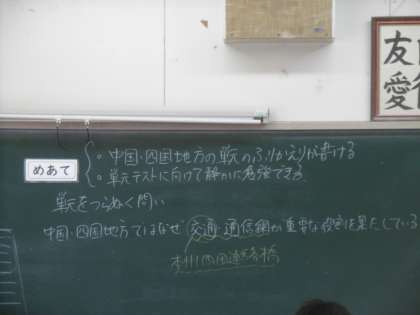 友
愛
めあて
。中国・四国地方の単元のふりかえりが書ける
。単元テストに向けて静かに勉強できる
単元をつらぬく問い
中国・四国地方ではなぜ交通・通信網が重要な役割を果たしている
本州四国連絡橋